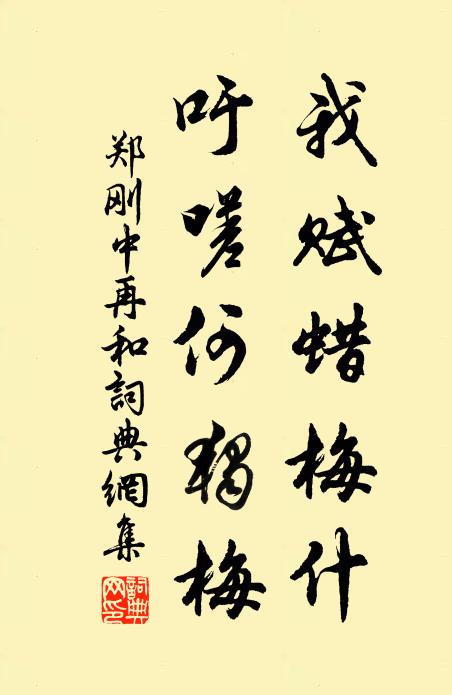 我赋蜡梅什
吁嗟何独梅
郑刚中再和詞典網集
詞典網印